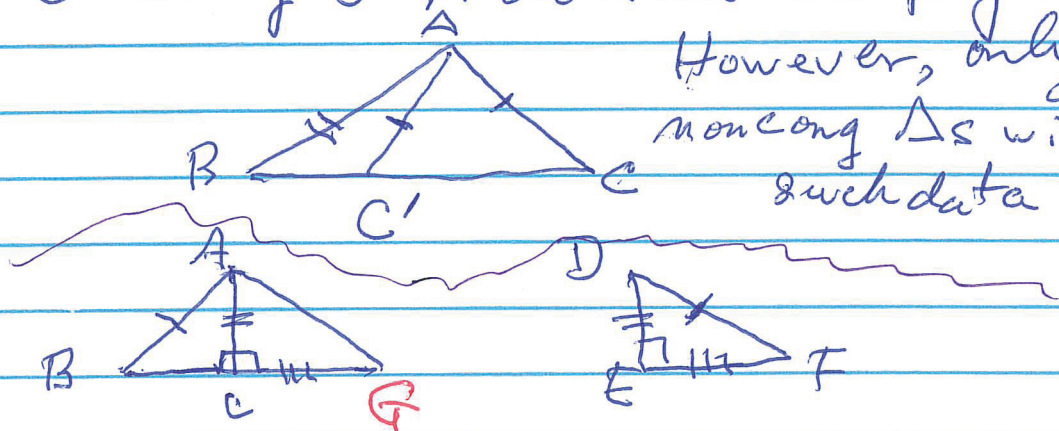 A
However, only
noncong Δs wi
such data
B
C
C'
A
D
B
C
G
E
F